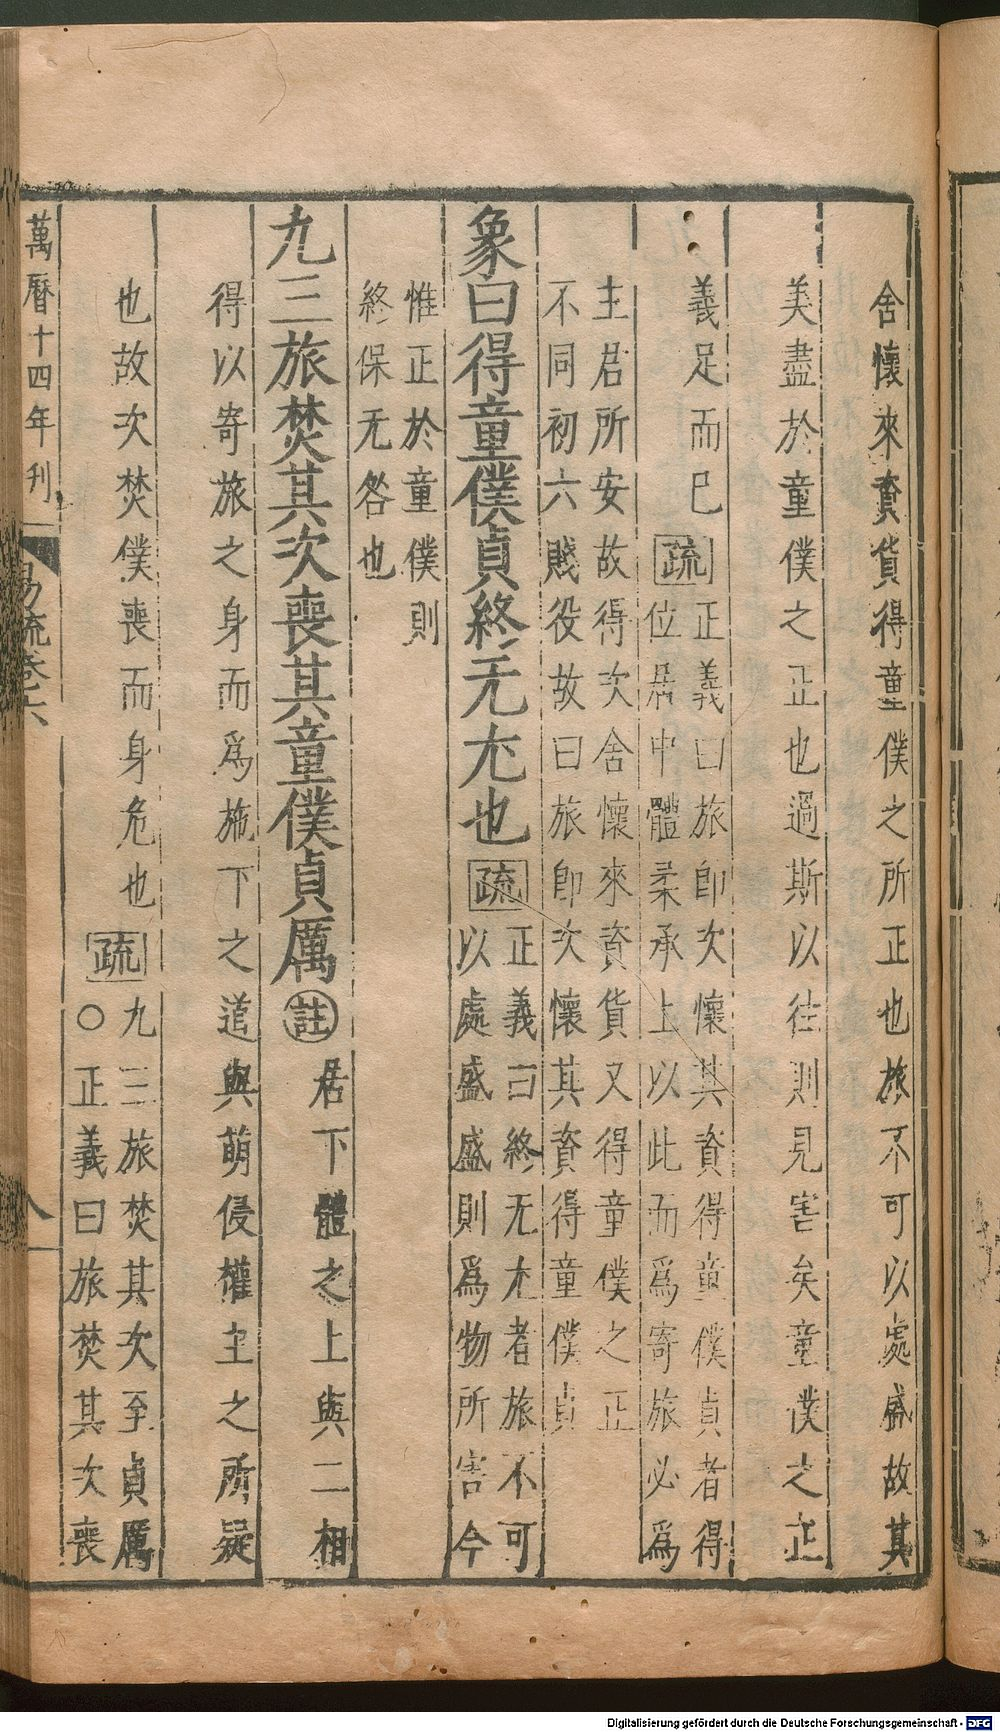 舍懷來資貨得童僕之所正也旅不可以處盛故其
美盡於童僕之正也過斯以往則見害矣童僕之正
義足而已
疏
正義曰旅卽次懷其資得童僕貞者得
位居中體柔承上以此而爲寄旅必爲
主君所安故得次舍懷來資貨又得童僕之正
不同初六賤役故曰旅卽次懷其資得童僕貞
象曰得童僕貞終无尤也
疏
正義曰終无尤者旅不可
以處盛盛則爲物所害今
惟正於童僕則
終保无咎也
九三旅焚其次喪其童僕貞厲
註
居下體之上與二相
得以寄旅之身而爲施下之道與萌侵權主之所疑
也故次焚僕喪而身危也
疏
九三旅焚其次至貞厲
○正義曰旅焚其次喪
萬曆十四年刊
易疏卷六
八
Digitalisierung gefördert durch die Deutsche Forschungsgemeinschaft - DFG